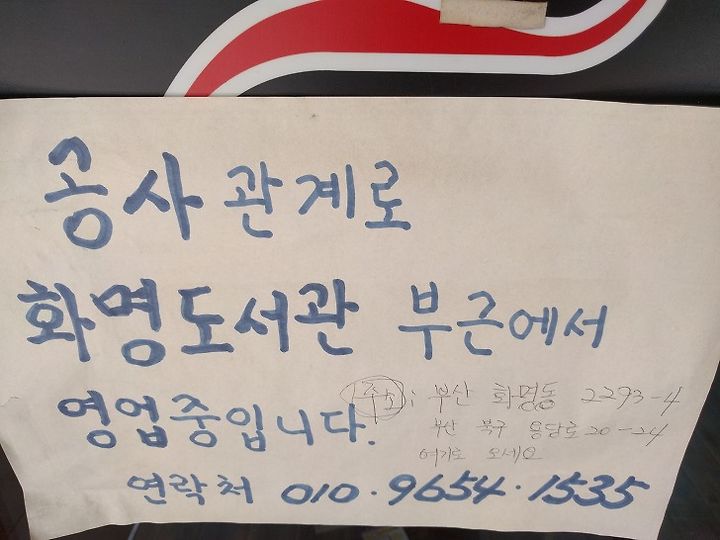 공사 관계로
화명도서관 부근에서
영업중입니다.
주소: 부산 화명동 2293-4
부산 북구 용당로 20-24
여기로 오세요
연락처 010.9654.1535